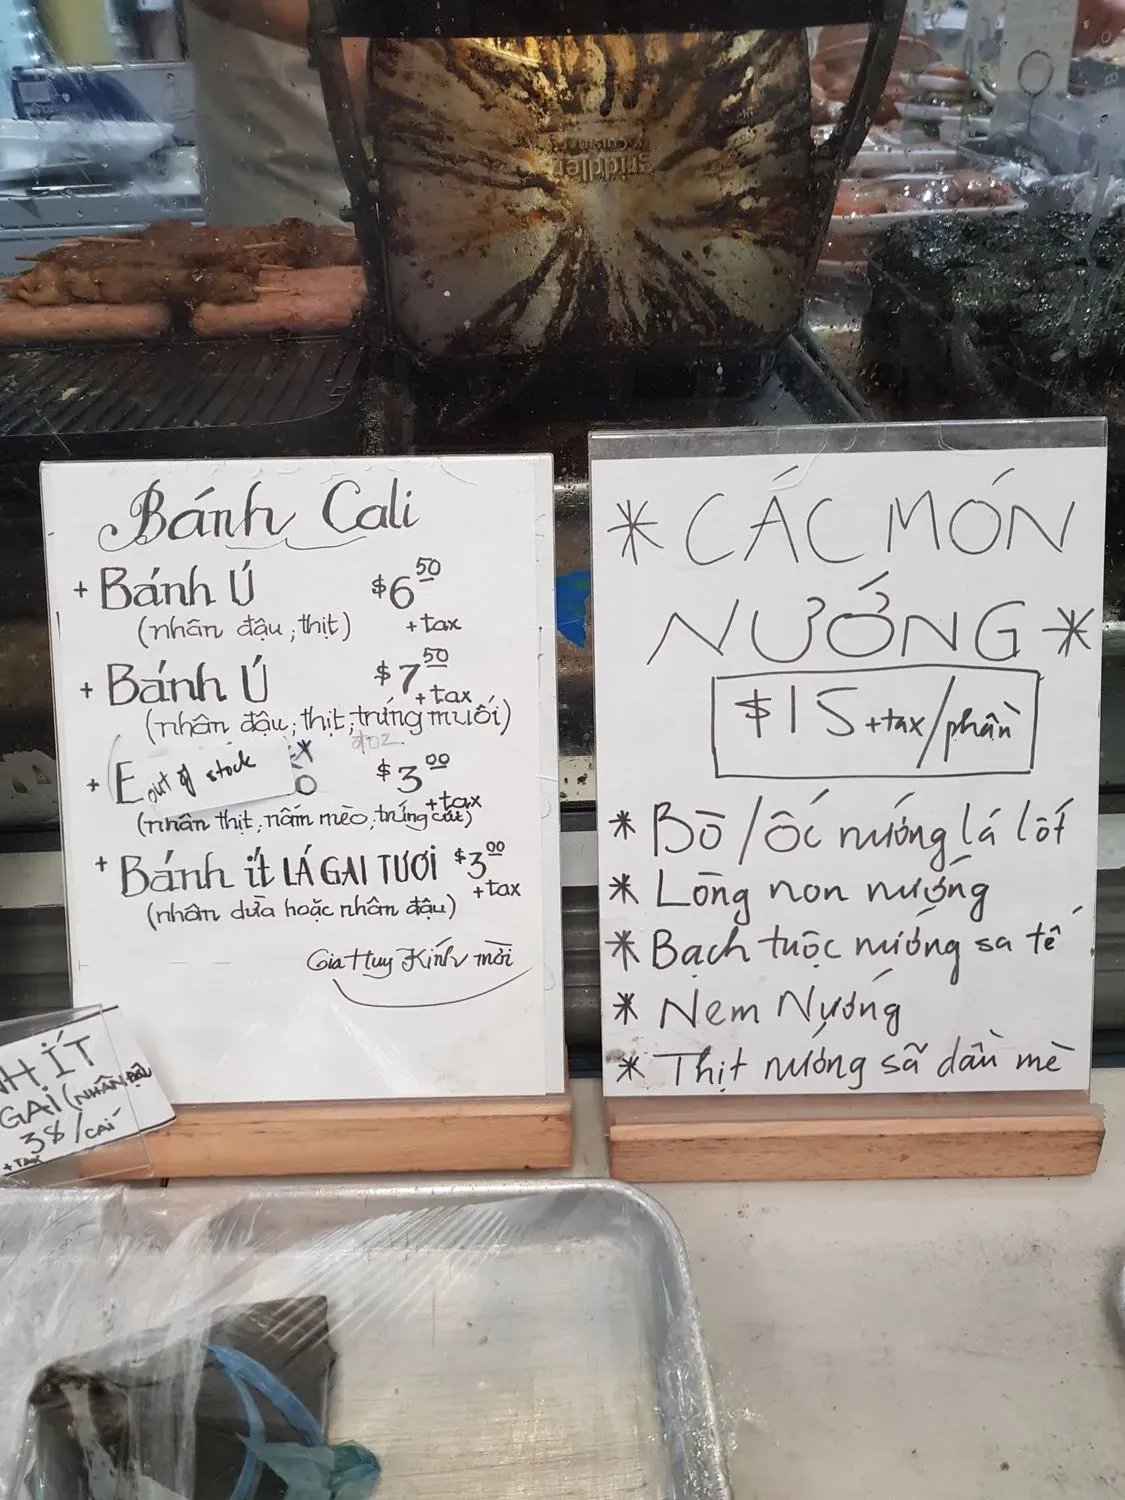 Bánh Cali
+ Bánh Ú $6 50
(nhân đậu, thịt) + tax
+ Bánh Ú $7 50
+ tax
(nhân đậu, thịt, trứng muối)
+ out of stock $3 00
+ tax
(nhân thịt, nấm mèo, trứng cút)
+ Bánh ít LÁ GAI TƯƠI $3 00
+ tax
(nhân dừa hoặc nhân đậu)
Gia Huy Kính mời
H ÍT
GAI (NHÂN ĐẬU
3$/CÁI
+ TAX
* CÁC MÓN
NƯỚNG *
$15 + tax/phần
* Bò/ốc nướng lá lốt
* Lòng non nướng
* Bạch tuộc nướng sa tế
* Nem Nướng
* Thịt nướng sã dầu mè